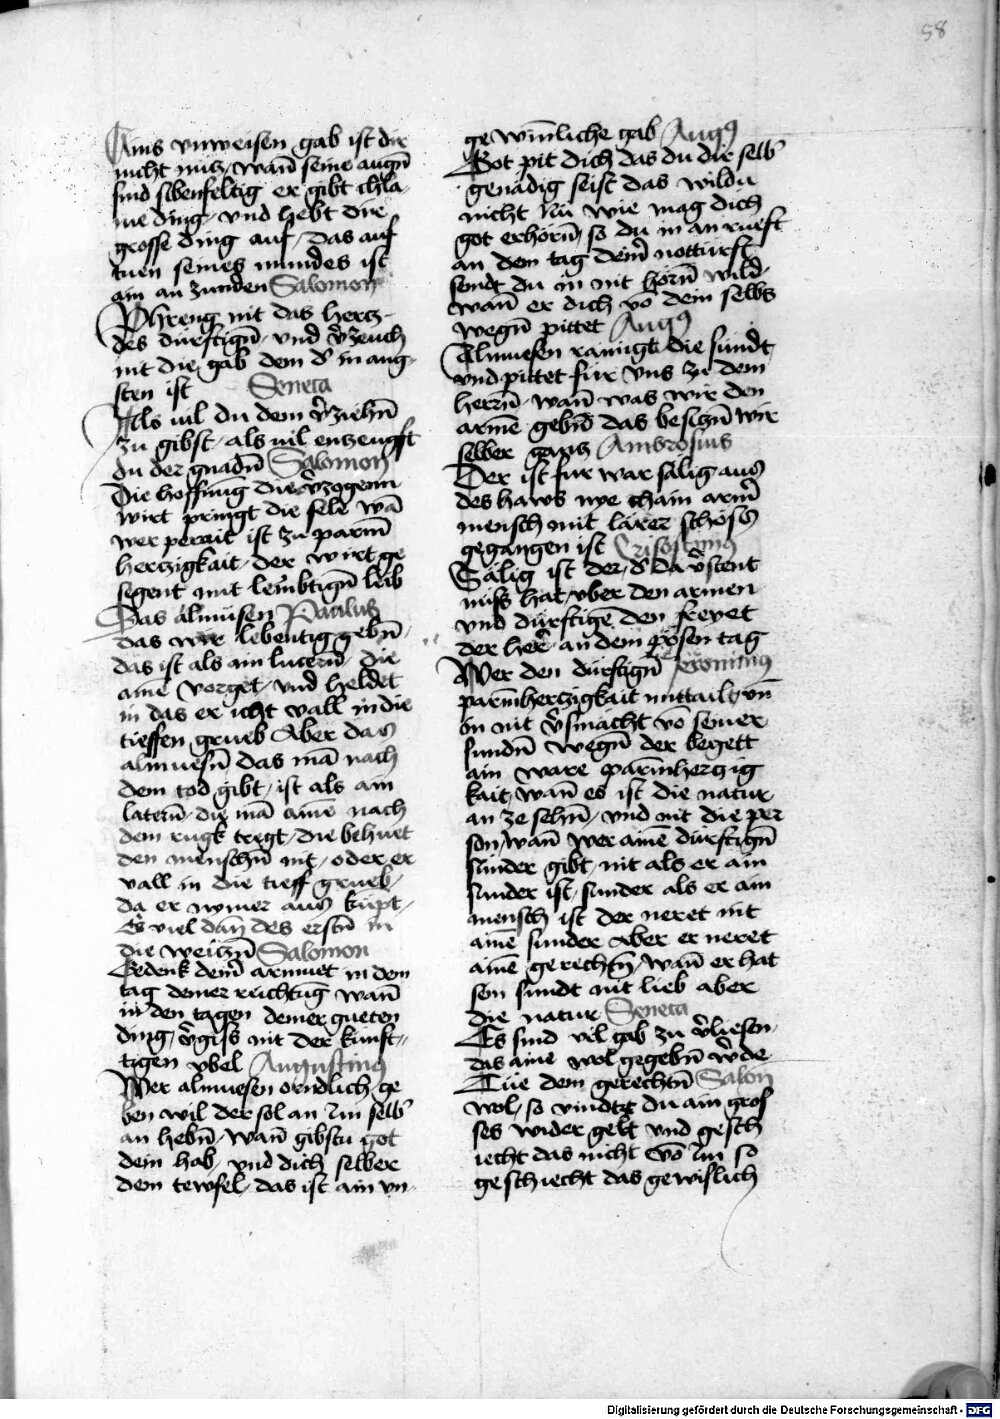 58
Ains vnweisen gab ist dir
nicht nutz, wan̄ seine augn̄
sind sibenfeltig er gibt chla-
ine ding, vnd hebt dir
grosse ding auf, das auf
tuen seines mundes ist
ain an zunden Salomon
Phreng nit das hertz-
des durftign̄ vnd v̄zeuch
nit die gab dem d' in ang-
sten ist Seneca
Als vil du dem v̄ziehn̄
zu gibst, als vil entzeugst
du der gnadn̄ Salomon
Die hoffnūg die v̄zogenn
wirt pringt die sele wā
wer perait ist zu parm̄
hertzigkait, der wirt ge
segent mit lembtign̄ leib
Das almüsen Paulus
das wir lebentig gebn̄,
das ist als ain lucern̄, die
aine vorget, vnd heldet
in das er icht vall in die
tieffen grueb Aber das
almuesn̄ das mā nach
dem tod gibt, ist als ain
latern̄, die mā aine nach
dem rugk tregt, die behuet
den menschn̄ nit, oder er
vall in die tieff grueb,
da er nymer aus kūpt,
Es viel dan̄ des erstn̄ in
die weitzn̄ Salomon
Gedenk dein̄ armuet in dem
tag deiner reichtūg wan̄
in den tagen deiner gueten
ding, v̄giss nit der kunft-
tigen vbel Augustinus
Wer almuesen orndlich ge
ben wil der sol an im selb'
an hebn̄, wan̄ gibstu got
dein hab, vnd dich selber
dem tewfel, das ist ain vn-
gewīnliche gab Augus
Got pit dich das du dir selb'
genadig seist das wildu
nicht Nu wie mag dich
got erhörn̄, so du in an rueft
an dem tag dein̄ notturft
seindt du in nit hörn̄ wild,
wan̄ er dich vō dein selbs
wegn̄ pittet Augus
Almuesen rainigt die sundt,
vnd pittet fur vns zu dem
herrn̄, wan̄ was wir den
armē gebn̄ das besitzn̄ wir
selber gantz Ambrosius
Der ist fur war sālig aus
des haws nye chain arm̄
mensch mit lārer schoss
gegangen ist Crisostomus
Sälig ist der, d' da v̄stent
nuss hat vber den armen
vnd dürftigē den freyet
der her̄ an dem pösen tag
Wer den durftign̄ Jeronimus
parm̄hertzigkait mittailt, vn̄
in nit v̄smacht vō seiner
sundn̄ wegn̄ der begett
ain ware parm̄hertzig
kait, wan̄ es ist die natur
an ze sehn̄, vnd nit die per
son, wan̄ wer aine durftign̄
sunder gibt, nit als er ain
sunder ist, sunder als er ain
mensch ist der neret nit
aine sunder Aber er neret
aine gerechtn̄, wan̄ er hat
sein sundt nit lieb aber
die natur Seneca
Es sind vil gab zu v̄liesen,
das aine wol gegebn̄ w̄de
Tüe dem gerechtn̄ Salon
wol, so vindtzt du ain gros
ses wider gelt vnd gesch
iecht das nicht vō im so
geschiecht das gewislich
Digitalisierung gefördert durch die Deutsche Forschungsgemeinschaft - DFG